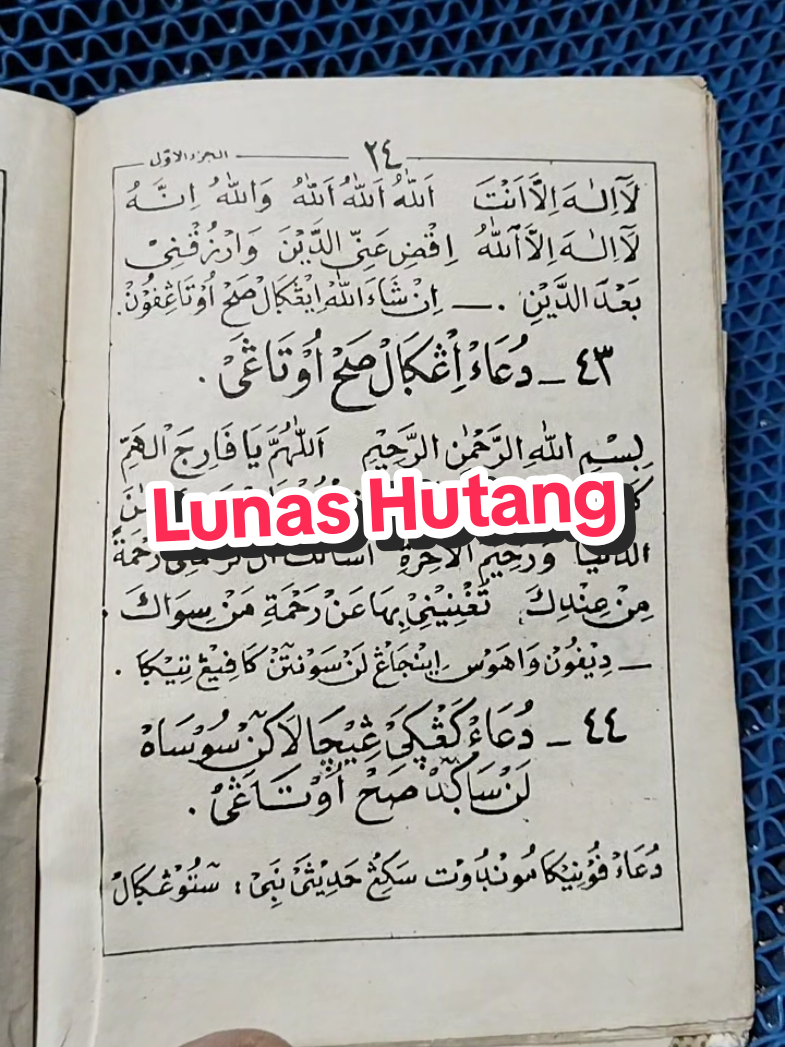 الجزء الاوّل
٢٤
لَآاِلٰهَ اِلَّااَنْتَ اَللّٰهُ اَللّٰهُ اَللّٰهُ وَاللّٰهُ اِنَّهُ
لَآاِلٰهَ اِلَّااللّٰهُ اِقْضِ عَنِّي الدَّيْنَ وَارْزُقْنِيْ
بَعْدَ الدَّيْنِ . — اِنْ شَاءَ اللّٰهْ اِيْڠكَالْ صَحْ اُوْتَاڠِفُوْنْ.
٤٣ – دُعَاءْ اِڠْكَالْ صَحْ اُوْتَاڠَيْ .
بِسْمِ اللّٰهِ الرَّحْمٰنِ الرَّحِيْمِ اَللّٰهُمَّ يَا فَارِجَ الْهَمِّ
Lunas Hutang
الدُّنْيَا وَرَحِيْمَ الْاٰخِرَةِ اَسْاَلُكَ اَنْ تَرْحَمَنِيْ رَحْمَةً
مِنْ عِنْدِكَ تُغْنِيْنِيْ بِهَا عَنْ رَحْمَةِ مَنْ سِوَاكَ .
— دِيْفُوْنْ وَاهَوْسْ اِيْنْجَاڠْ لَنْ سَوْنْتَنْ كَافِيْڠْ تِيْݢَا .
٤٤ – دُعَاءْ كَڠْݢَيْ ڠِيْچَالَاكَنْ سُوْسَاهْ
لَنْ سَاݢَدْ صَحْ اُوْتَاڠَيْ .
دُعَاءْ فُوْنِيْكَا مُوْنْدُوْت سَكِڠْ حَدِيْثَيْ نَبِيْ : سَتُوْڠْݢَالْ